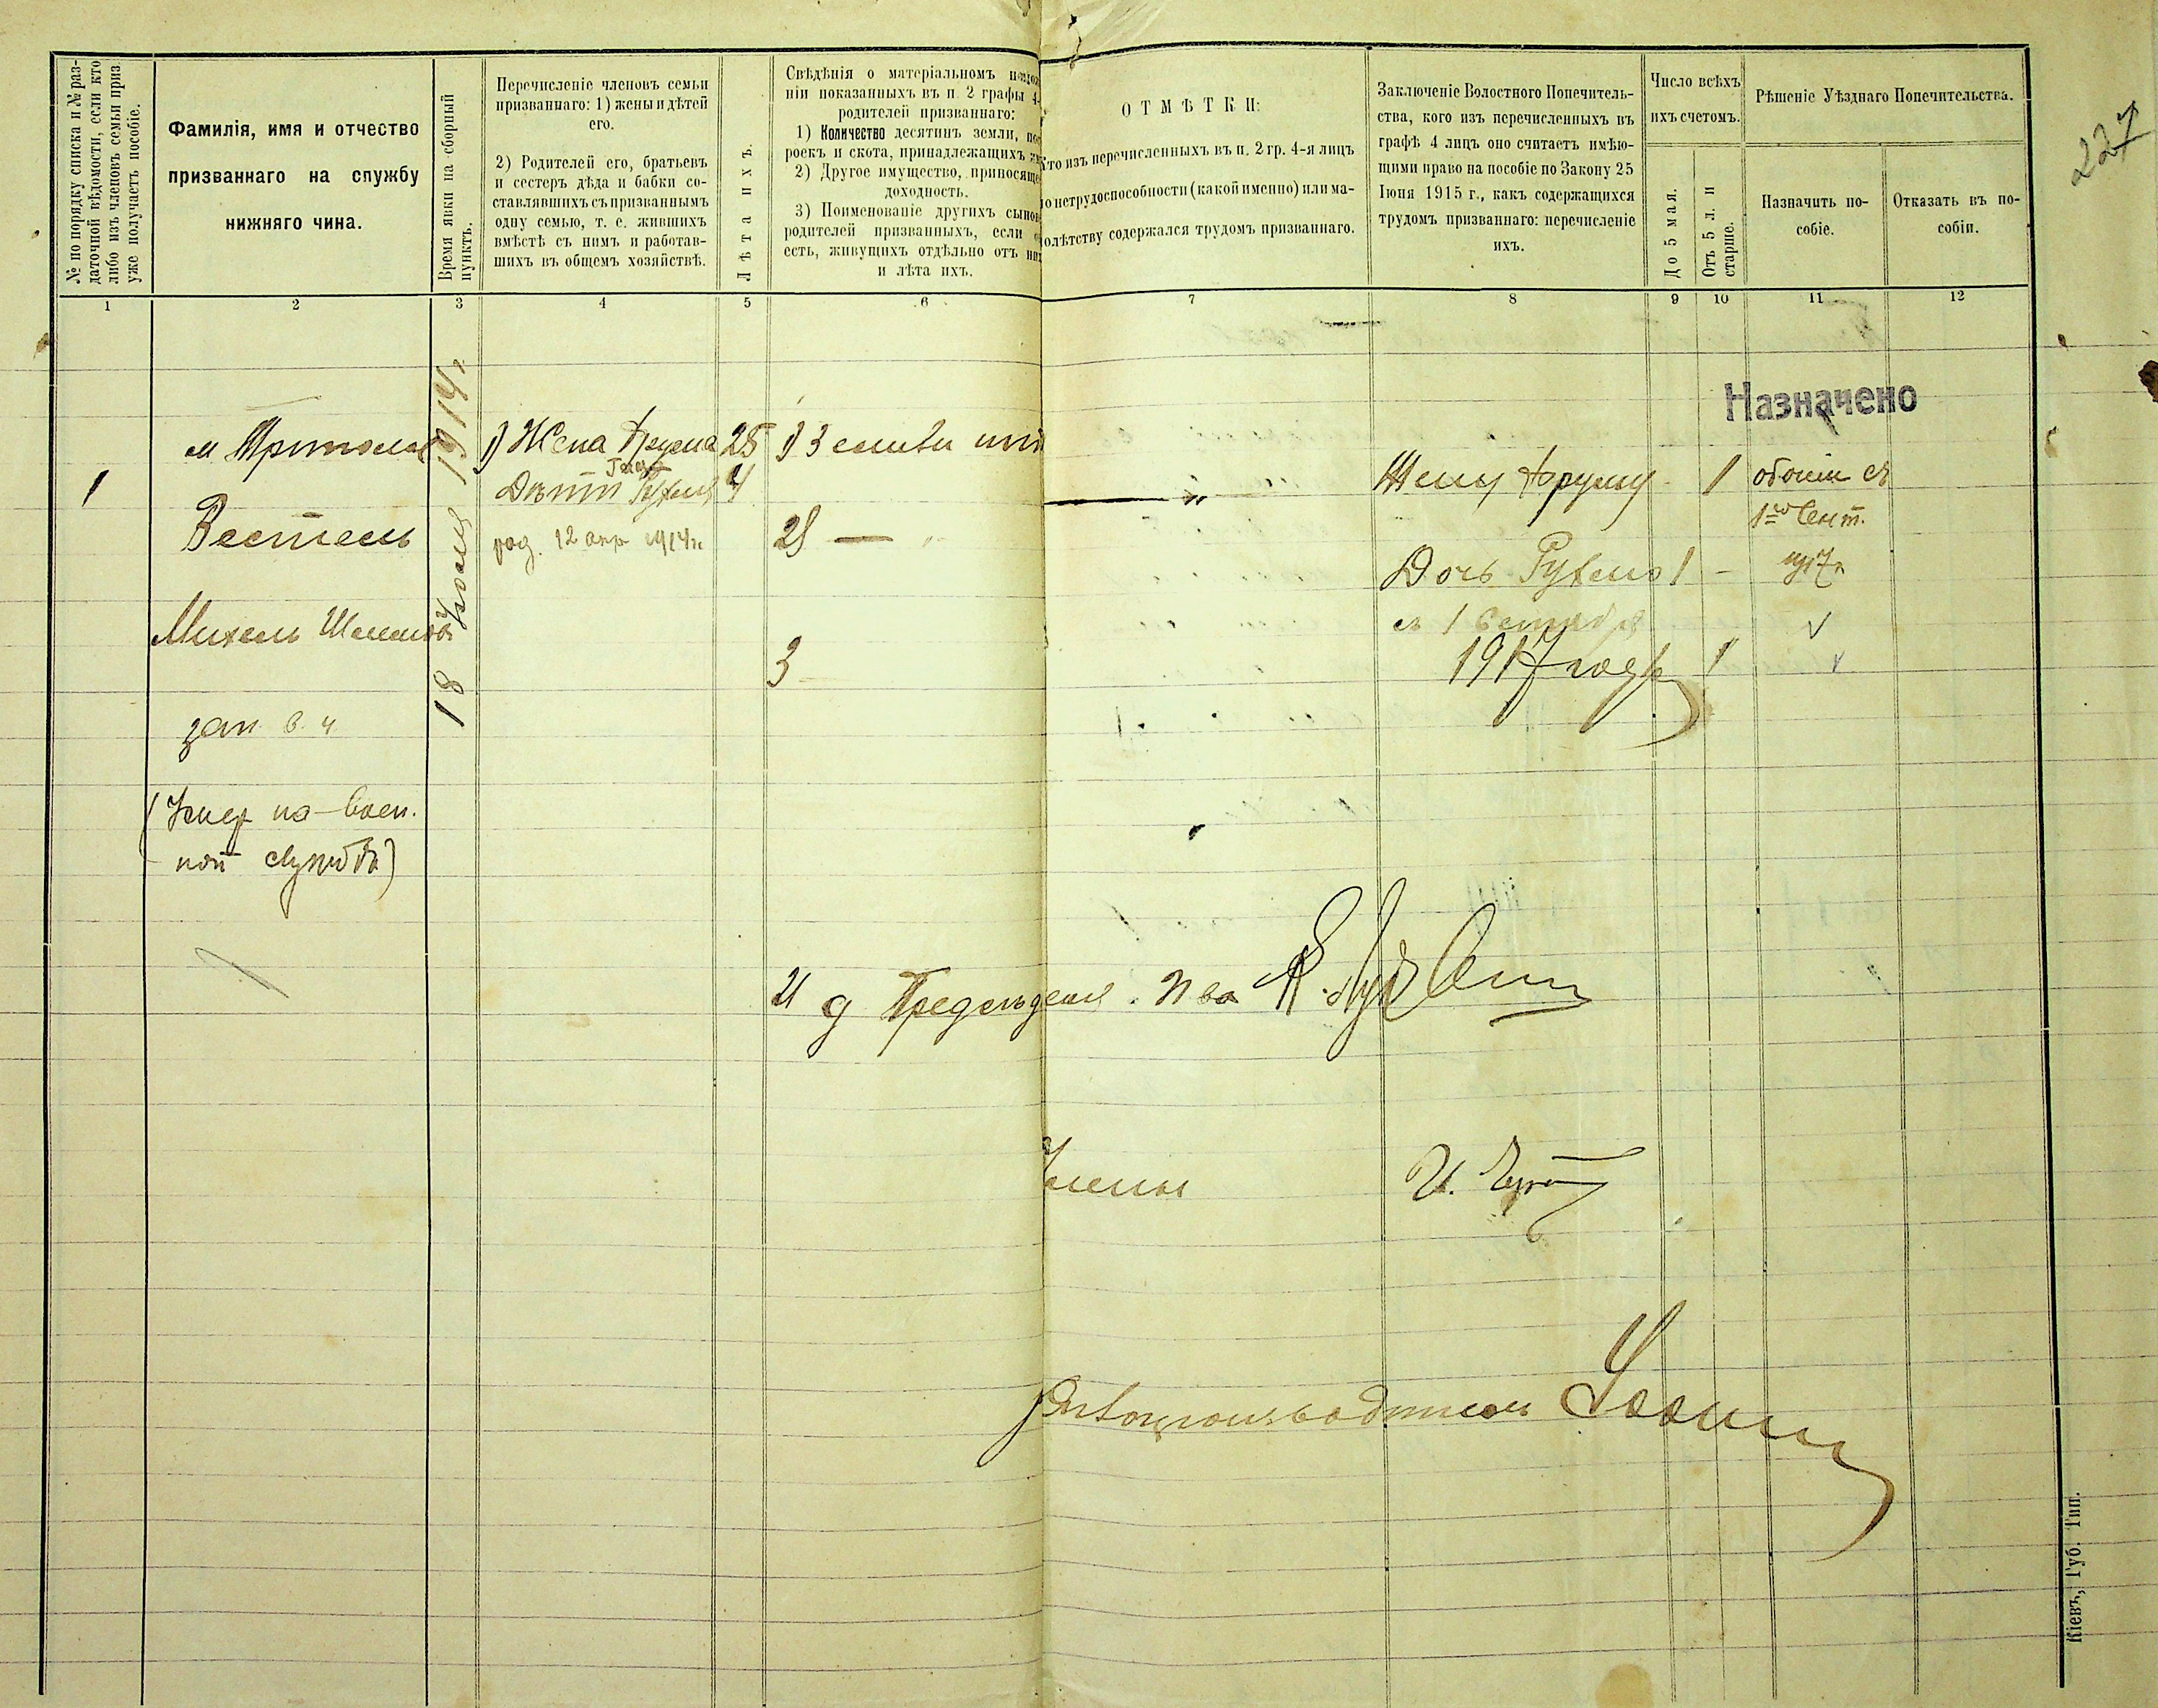 227
№ по порядку списка и № раз-
даточной вѣдомости, если кто
либо изъ членовъ семьи приз.
уже получаетъ пособіе.
Фамилія, имя и отчество
призваннаго на службу
нижняго чина.
Время явки на сборный
пунктъ.
Перечисленіе членовъ семьи
призваннаго: 1) жены и дѣтей
его.
2) Родителей его, братьевъ
и сестеръ дѣда и бабки со-
ставлявшихъ съ призваннымъ
одну семью, т. е. жившихъ
вмѣстѣ съ нимъ и работав-
шихъ въ общемъ хозяйствѣ.
Лѣта ихъ.
Свѣдѣнія о матеріальномъ
ніи показанныхъ въ п. 2 графы 4-
родителей призваннаго:
1) Количество десятинъ земли, пос
роекъ и скота, принадлежащихъ
2) Другое имущество, приносяще
доходность.
3) Поименованіе другихъ сынов
родителей призванныхъ, если
есть, живущихъ отдѣльно отъ них
и лѣта ихъ.
ОТМѢТКИ:
Кто изъ перечисленныхъ въ п. 2 гр. 4-я лицъ
по нетрудоспособности (какой именно) или ма-
олѣтству содержался трудомъ призваннаго.
Заключеніе Волостного Попечитель-
ства, кого изъ перечисленныхъ въ
графѣ 4 лицъ оно считаетъ имѣю-
щими право на пособіе по Закону 25
Іюня 1915 г., какъ содержащихся
трудомъ призваннаго: перечисленіе
ихъ.
Число всѣхъ
ихъ счетомъ.
До 5 мая.
Отъ 5 л. и
старше.
Рѣшеніе Уѣзднаго Попечительства.
Назначить по-
собіе.
Отказать въ по-
собіи.
1 2 3 4 5 6 7 8 9 10 11 12
Назначено
1
м
Вестель
Михель
зап. в. ч.
(Умер на воен.
ной службѣ)
18 Іюля 1914 г.
1) Жена Фрума 25
Дѣти 4
род. 12 апр 1914 г.
1) Земли
2) —
3
Жену Фруму 1
Дочь 1 —
съ 1 Сентября
1917 года 1
обоим съ
1го Сент.
1917 г.
И д Предсѣдателя
Члены
И.
Дѣлопроизводитель
Кіевъ, Губ. Тип.